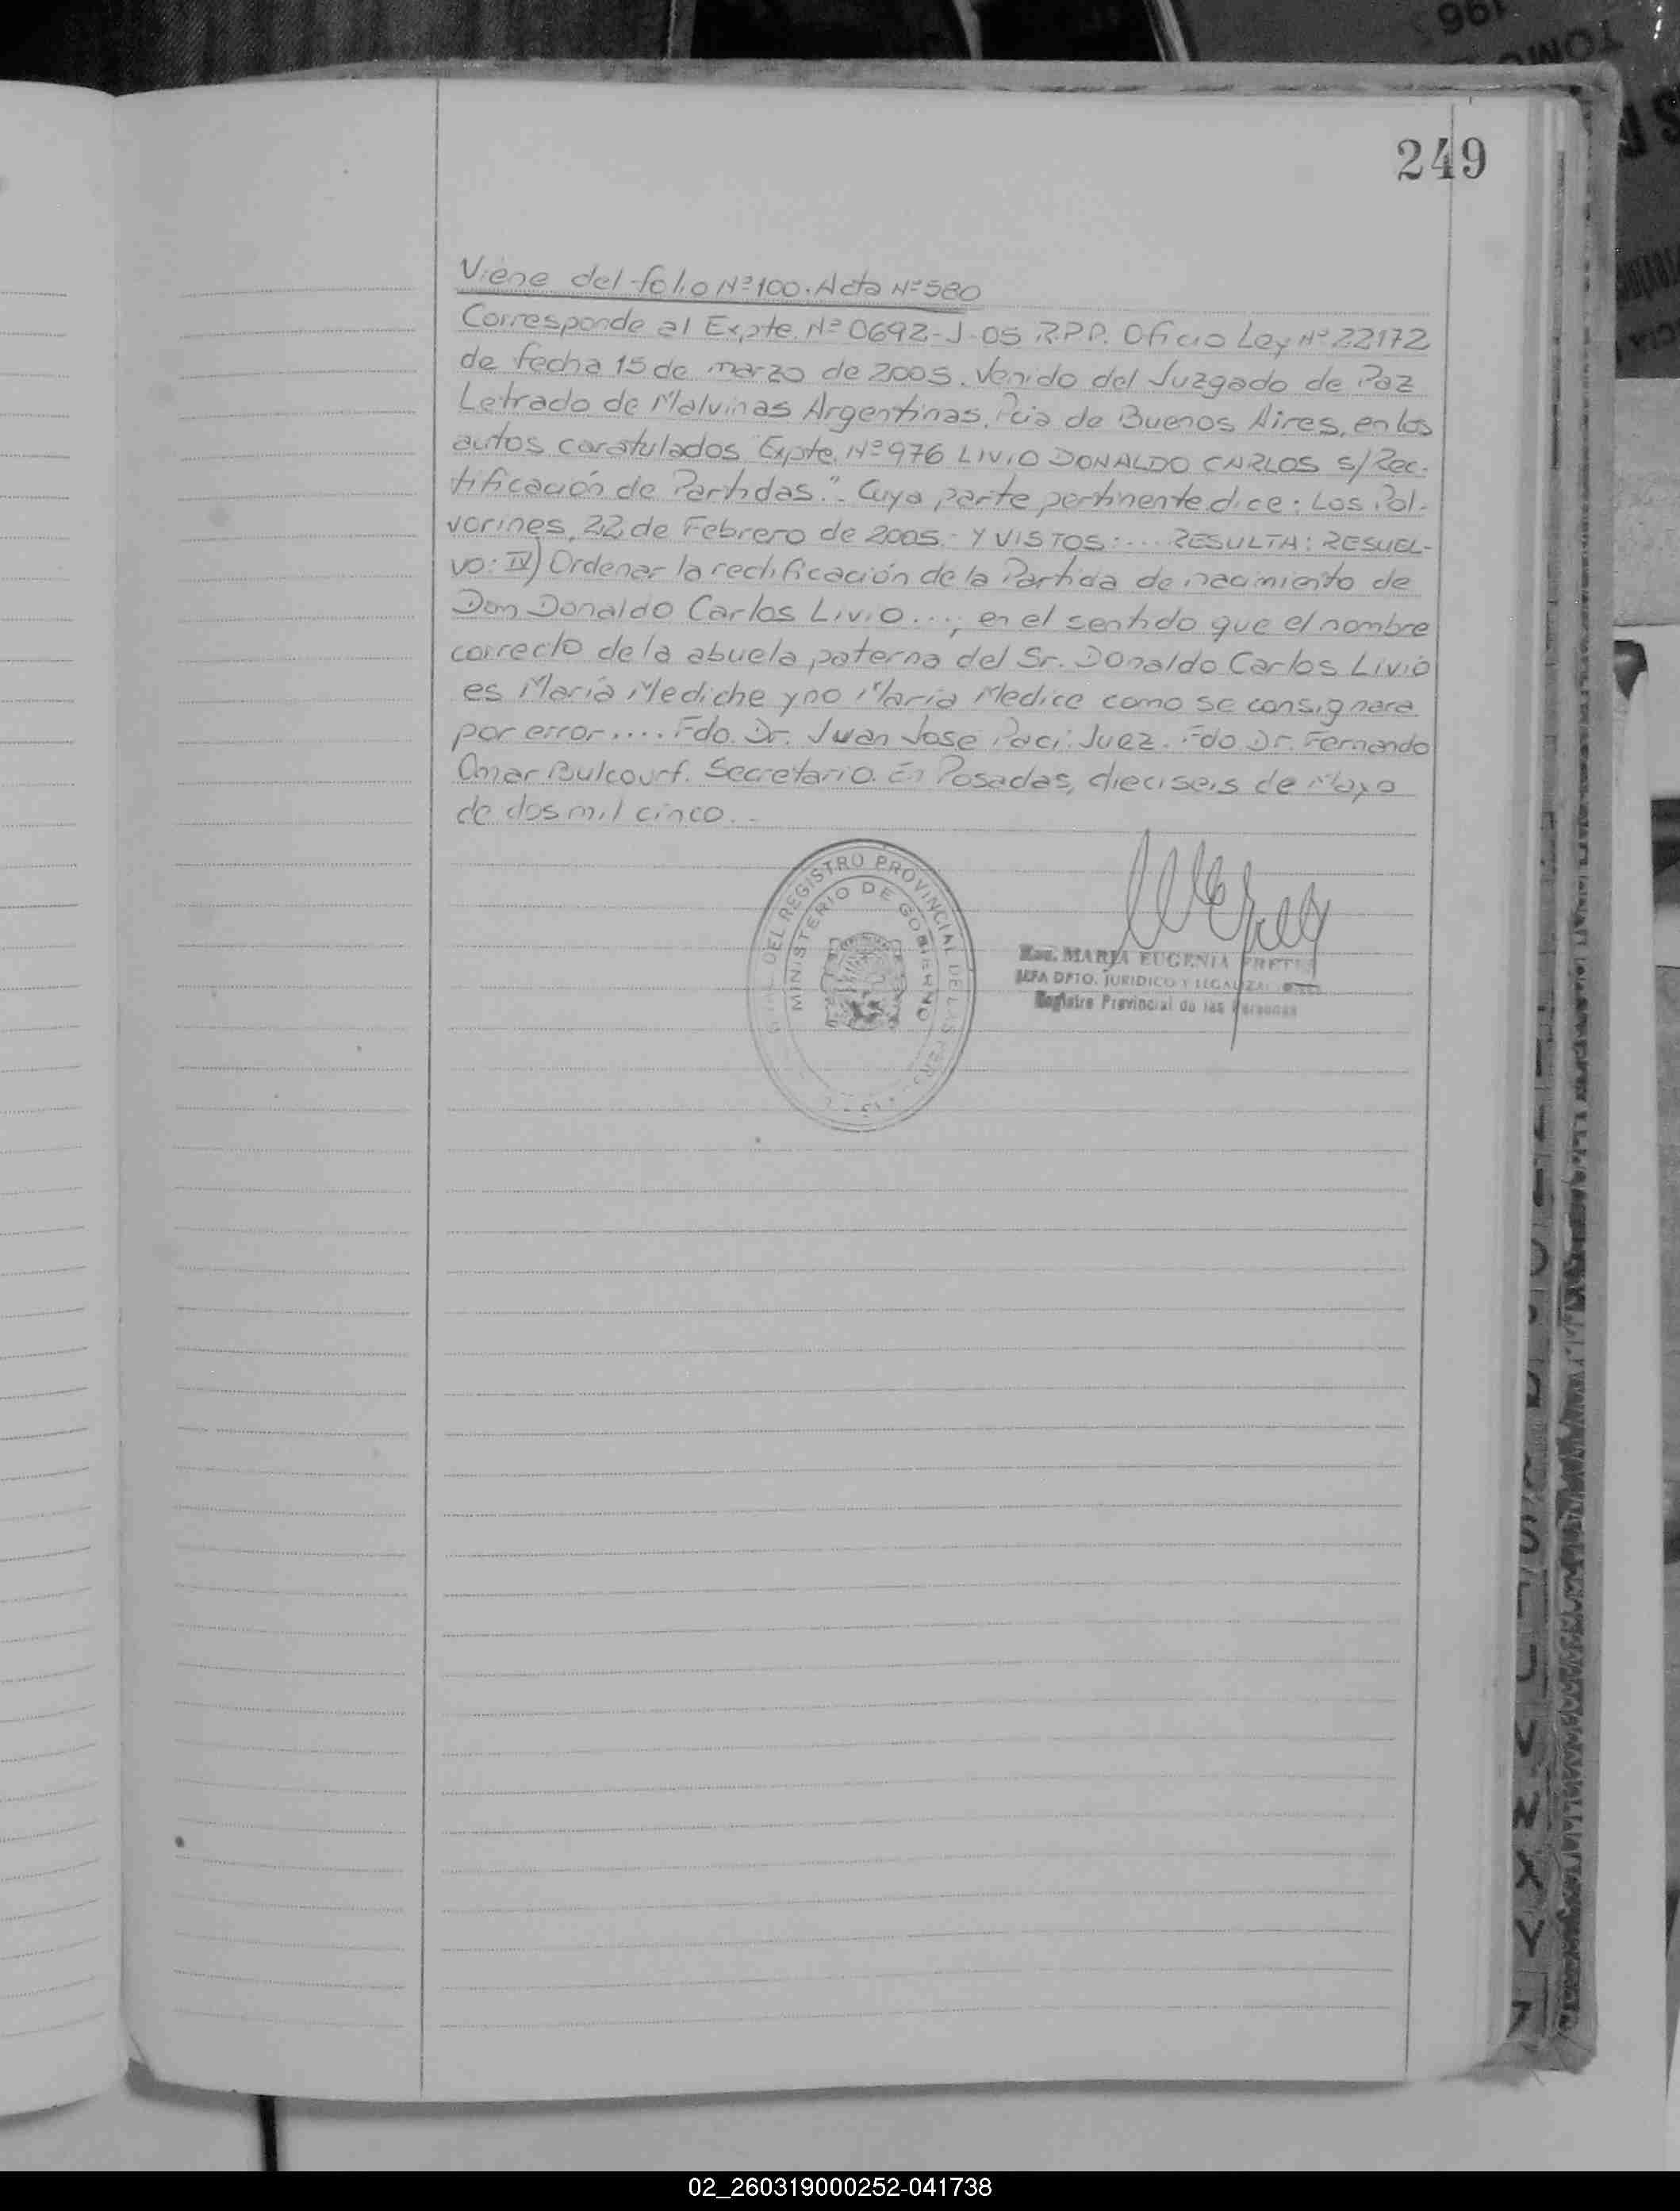 249
Viene del folio Nº100. Acta Nº580
Corresponde al Expte. Nº 0692-J-05 R.P.P. Oficio Ley Nº 22172
de fecha 15 de marzo de 2005. Venido del Juzgado de Paz
Letrado de Malvinas Argentinas, Pcia de Buenos Aires, en los
autos caratulados "Expte. Nº976 LIVIO DONALDO CARLOS S/Rec-
tificación de Partidas.". Cuya parte pertinente dice: Los Pol-
vorines, 22 de Febrero de 2005.- Y VISTOS:... RESULTA: RESUEL-
vo: IV) Ordenar la rectificación de la Partida de nacimiento de
Don Donaldo Carlos Livio...; en el sentido que el nombre
correcto de la abuela paterna del Sr. Donaldo Carlos Livio
es María Mediche y no María Medice como se consignara
por error.... Fdo. Dr. Juan Jose Paci. Juez. Fdo Dr. Fernando
Omar Bulcourf. Secretario. En Posadas, dieciseis de Mayo
de dos mil cinco.-
DEL REGISTRO PROVINCIAL DE LAS PERS
MINISTERIO DE GOBIERNO
MARIA EUGENIA
JEFA DPTO. JURIDICO Y LEGALIZAC
Registro Provincial de las Personas
196
TOMO
V
W
X
Y
Z
02_260319000252-041738